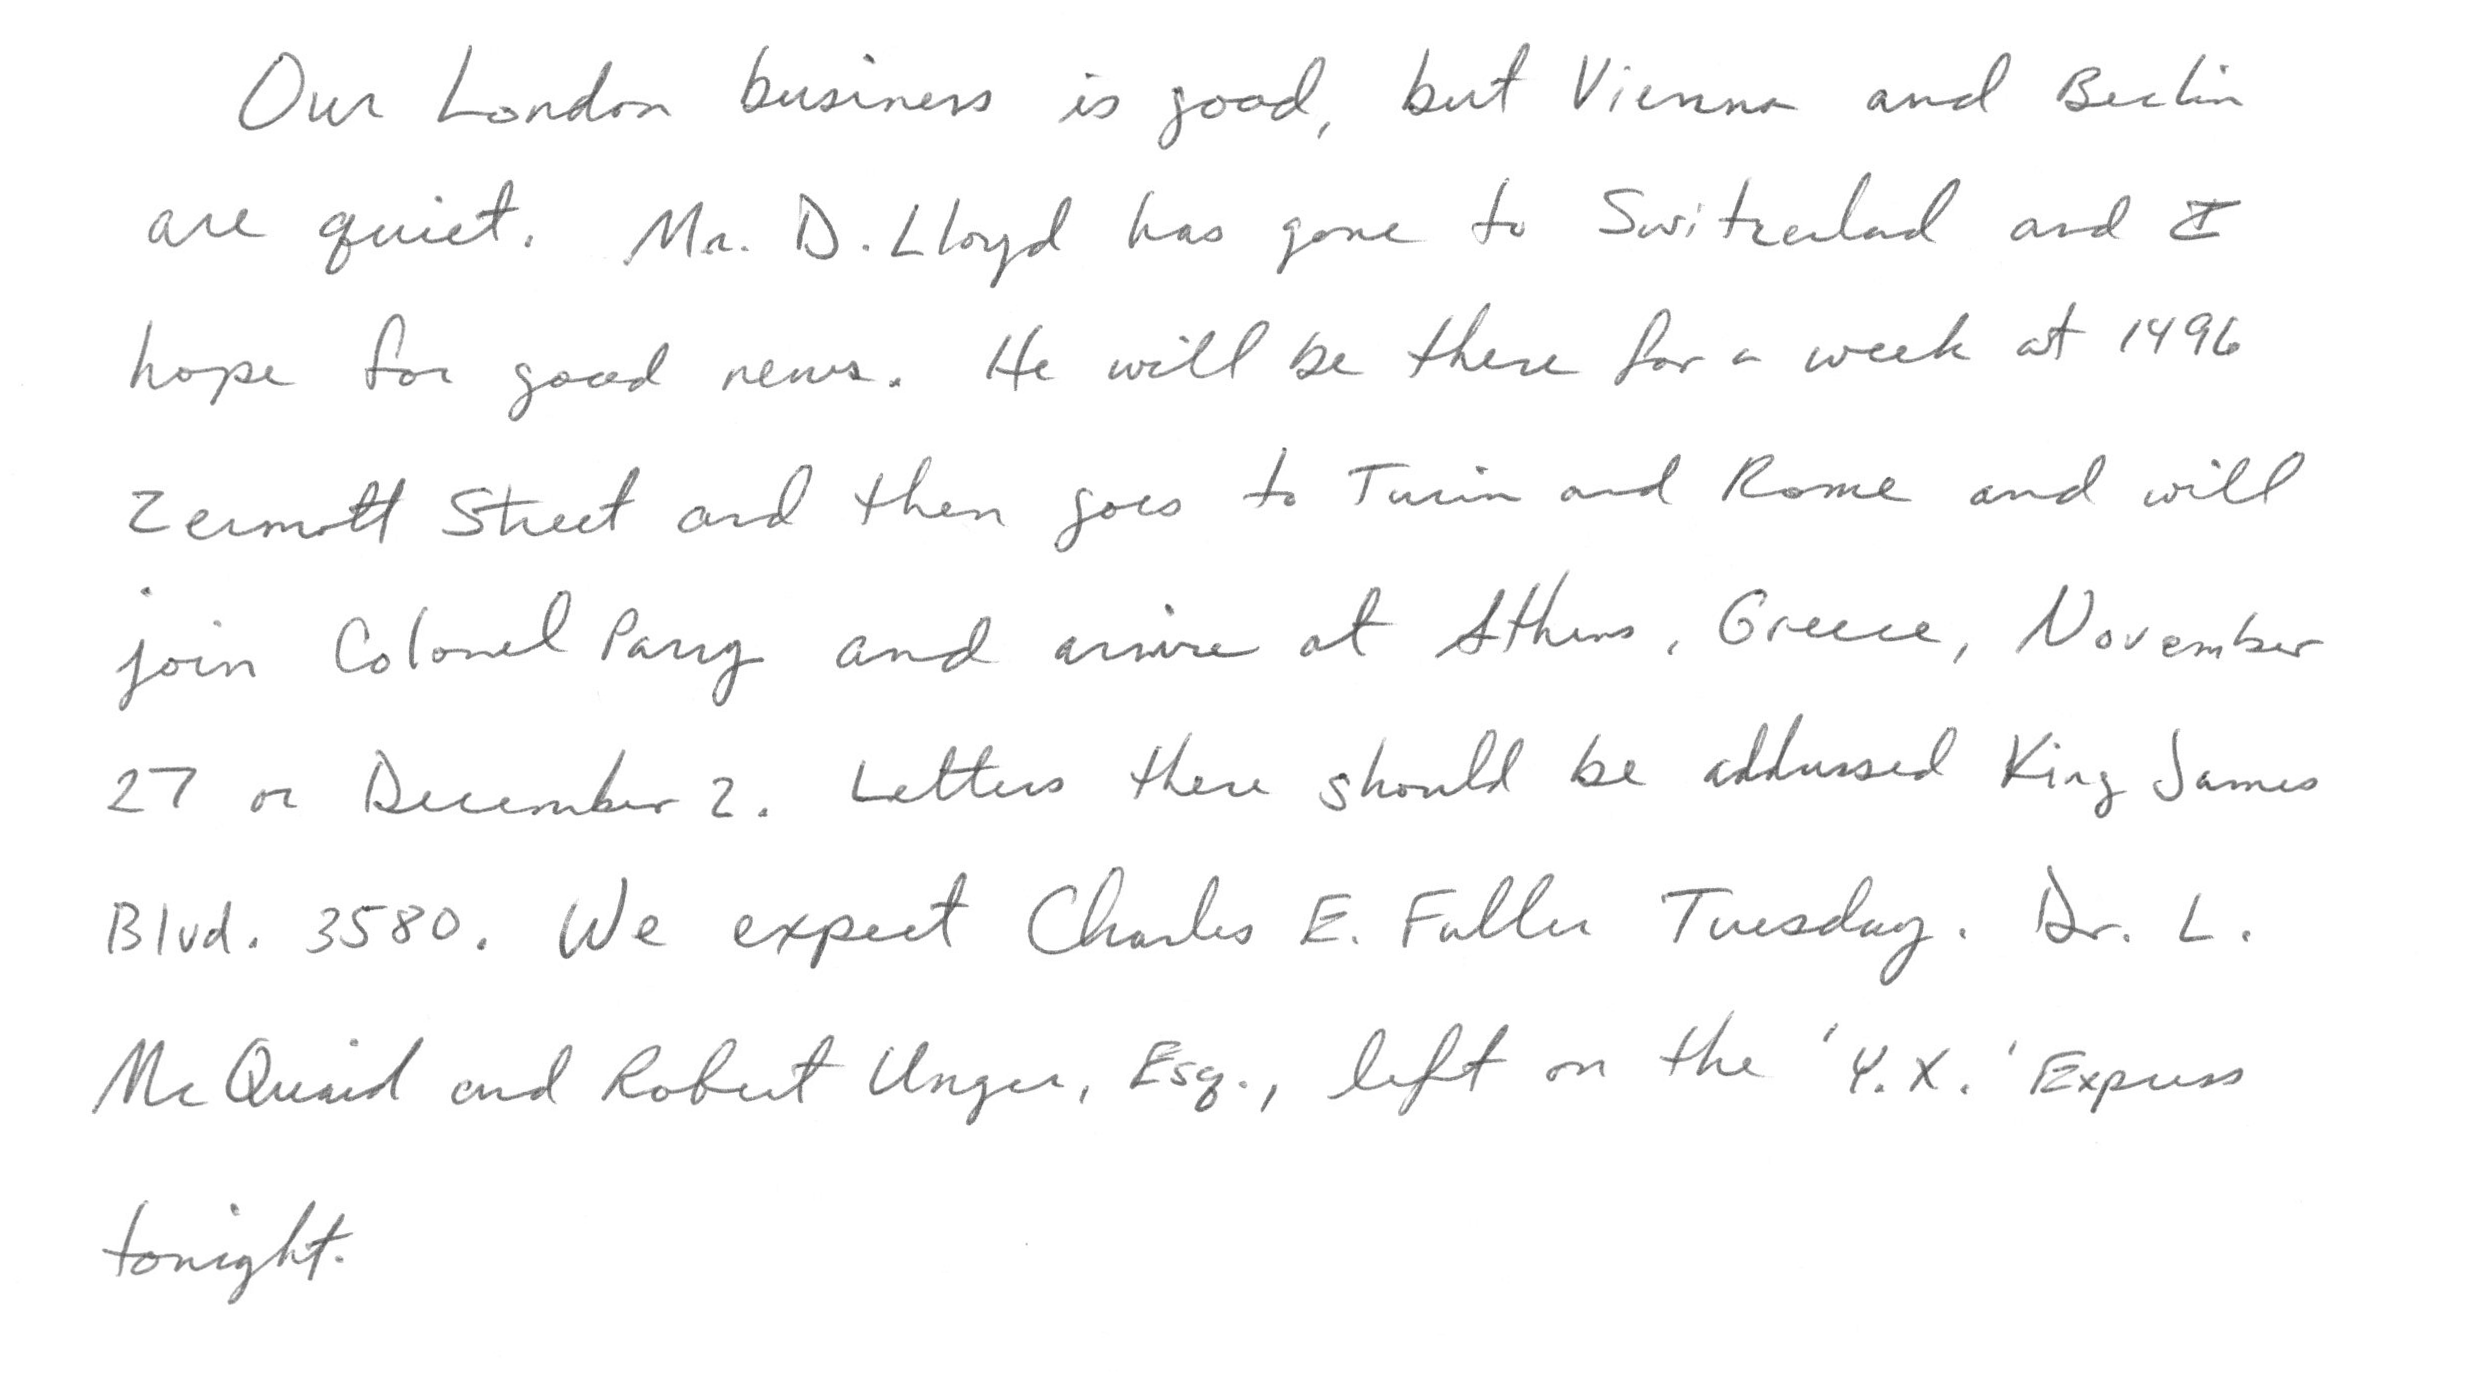 Our London business is good, but Vienna and Berlin
are quiet. Mr. D. Lloyd has gone to Switzerlad and I
hope for good news. He will be there for a week at 1496
Zermott Street and then goes to Turin and Rome and will
join Colonel Parry and arrive at Athens, Greece, November
27 or December 2. Letters there should be addressed King James
Blvd. 3580. We expect Charles E. Fuller Tuesday. Dr. L.
McQuaid and Robert Unger, Esq., left on the 'Y.X.' Express
tonight.